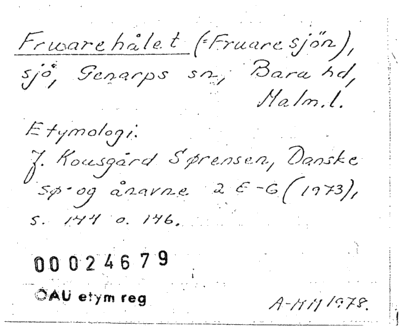 Fruarehålet (=Fruaresjön),
sjö, Genarps sn, Bara hd,
Malm.l.
Etymologi.
J. Kousgård Sørensen, Danske
sø- og ånavne 2 E-G (1973),
s. 144 o. 146.
00024679
OAU etym reg
A-MM 1978.